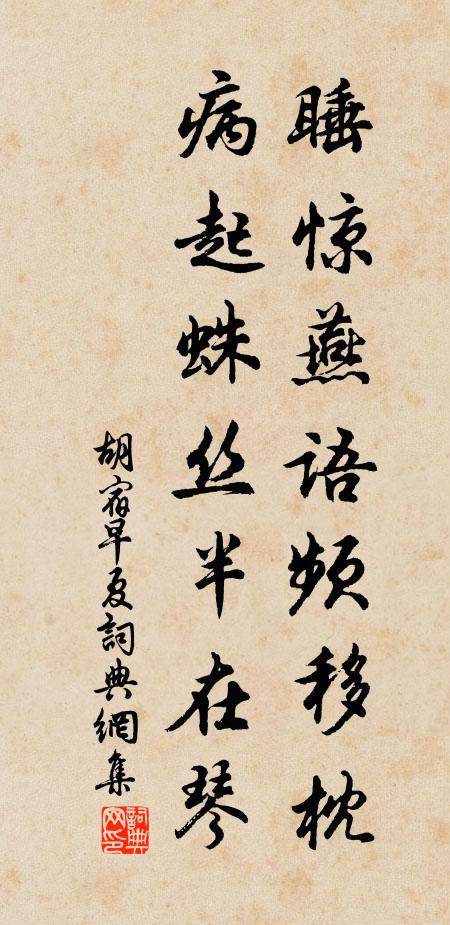 睡惊燕语频移枕
病起蛛丝半在琴
胡宿早夏詞典網集
詞典网印